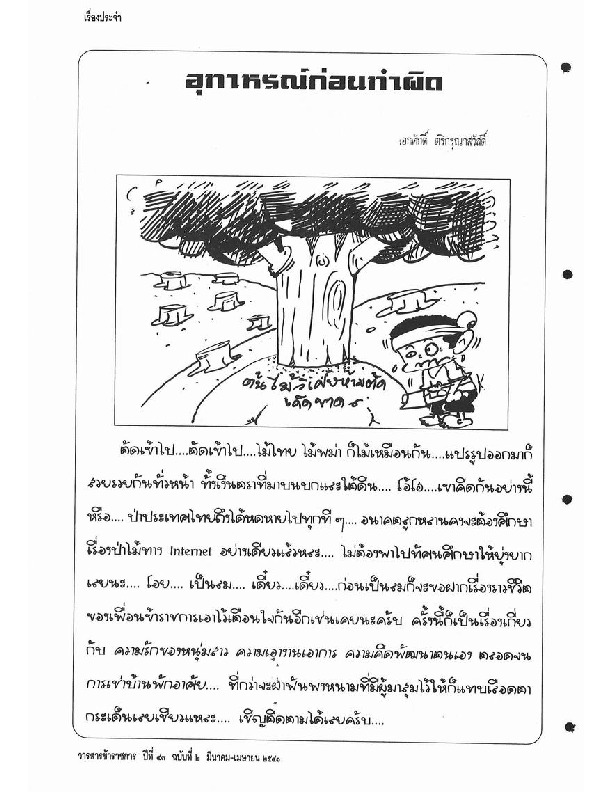 เรื่องประจำ
อุทาหรณ์ก่อนทำผิด
เอนศักดิ์
ต้นไม้วิเศษห้ามตัด
เด็ดขาด
ตัดเข้าไป....ตัดเข้าไป....ไม้ไทย ไม้พม่า ก็ไม้เหมือนกัน....แปรรูปออกมาก็
รวยรวยกันทั่วหน้า ทั้งเงินตราที่มาบนบกและใต้ดิน.... โอ้โอ....เขาคิดกันอย่างนี้
หรือ.... ป่าประเทศไทยถึงได้หดหายไปทุกที ๆ.... อนาคตลูกหลานคงจะต้องศึกษา
เรื่องป่าไม้ทาง Internet อย่างเดียวแล้วหละ.... ไม่ต้องพาไปทัศนศึกษาให้ยุ่งยาก
เลยนะ.... โอย.... เป็นลม.... เดี๋ยว....เดี๋ยว....ก่อนเป็นลมก็จะขอฝากเรื่องราวชีวิต
ของเพื่อนข้าราชการเอาไว้เตือนใจกันอีกเช่นเคยนะครับ ครั้งนี้ก็เป็นเรื่องเกี่ยว
กับ ความรักของหนุ่มสาว ความเอาการเอางาน ความคิดพัฒนาตนเอง ตลอดจน
การเช่าบ้านพักอาศัย.... ที่กว่าจะฝ่าฟันพาหนามที่มีผู้มาสุมไว้ให้ก็แทบเลือดตา
กระเด็นเลยเชียวแหละ.... เชิญติดตามได้เลยครับ....
วารสารข้าราชการ ปีที่ ๔๓ ฉบับที่ ๒ มีนาคม-เมษายน ๒๕๔๑